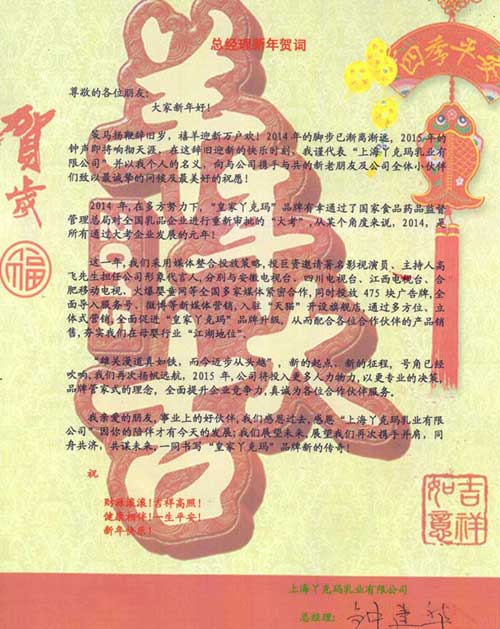 总经理新年贺词
四季平安
贺岁
福
尊敬的各位朋友:
大家新年好!
策马扬鞭辞旧岁，禧羊迎新万户欢! 2014 年的脚步已渐离渐远，2015 年的
钟声即将响彻天涯，在这辞旧迎新的快乐时刻，我谨代表“上海丫克玛乳业有
限公司”并以我个人的名义，向与公司携手与共的新老朋友及公司全体小伙伴
们致以最诚挚的问候及最美好的祝愿!
2014 年,在多方努力下，“皇家丫克玛”品牌有幸通过了国家食品药品监督
管理总局对全国乳品企业进行重新审批的“大考”,从某个角度来说，2014，是
所有通过大考企业发展的元年!
这一年,我们采用媒体整合投放策略,投巨资邀请著名影视演员、主持人高
飞先生担任公司形象代言人,分别与安徽电视台、四川电视台、江西电视台、合
肥移动电视、火爆婴童网等全国多家媒体紧密合作,同时投放 475 块广告牌,全
面导入服务号、微博等新媒体营销,入驻“天猫”开设旗舰店,通过多方位、立
体式营销,全面促进“皇家丫克玛”品牌升级，从而配合各位合作伙伴的产品销
售,夯实我们在母婴行业“江湖地位”。
“雄关漫道真如铁，而今迈步从头越”，新的起点、新的征程，号角已经
吹响,我们再次扬帆远航，2015 年,公司将投入更多人力物力,以更专业的决策,
品牌管家式的理念，全面提升企业竞争力,真诚为各位合作伙伴服务。
我亲爱的朋友,事业上的好伙伴,我们感恩过去,感恩“上海丫克玛乳业有限
公司”因你的陪伴才有今天的发展;我们展望未来,展望我们再次携手并肩，同
舟共济，共谋未来,一同书写“皇家丫克玛”品牌新的传奇!
祝
财源滚滚!吉祥高照!
健康相伴!一生平安!
新年快乐!
吉祥如意
上海丫克玛乳业有限公司
总经理: 钟建华